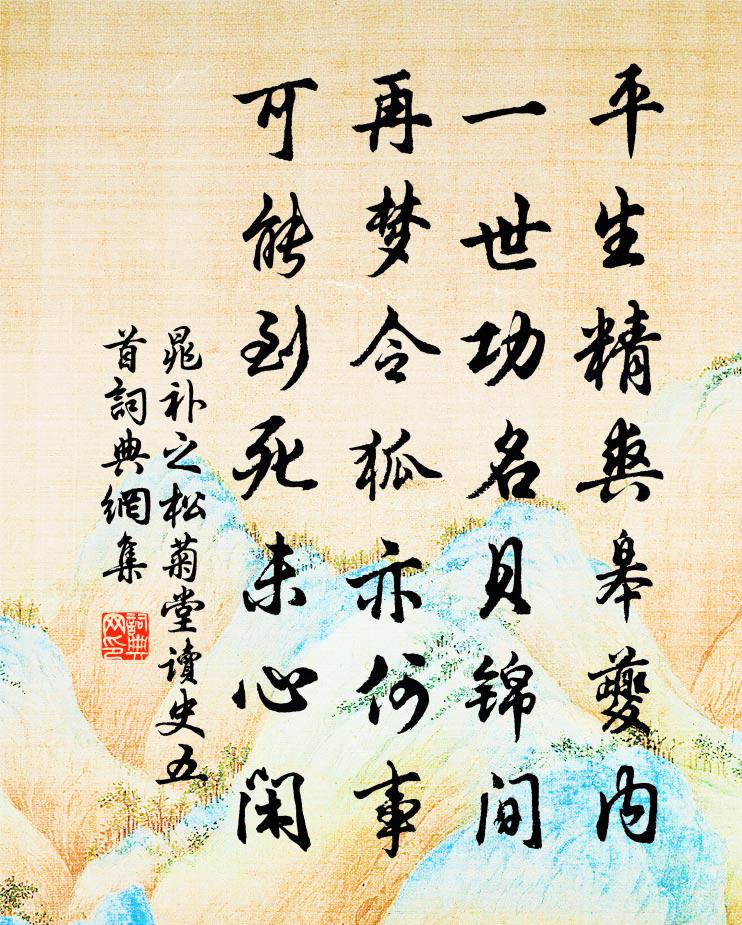 平生精爽皋夔内
一世功名貝锦间
再梦令狐亦何事
可能到死未心闲
晁补之松菊堂讀史五
首詞典網集
詞典
网印